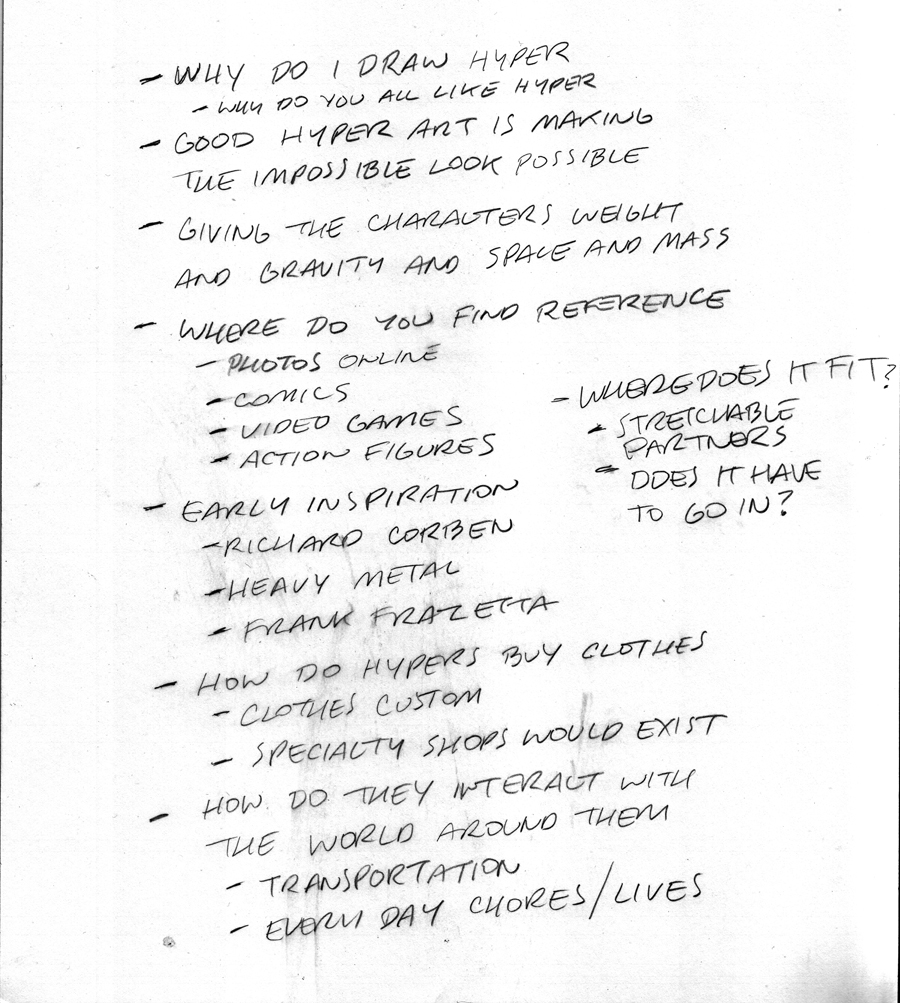 - WHY DO I DRAW HYPER
- WHY DO YOU ALL LIKE HYPER
- GOOD HYPER ART IS MAKING
THE IMPOSSIBLE LOOK POSSIBLE
- GIVING THE CHARACTERS WEIGHT
AND GRAVITY AND SPACE AND MASS
- WHERE DO YOU FIND REFERENCE
- PHOTOS ONLINE
- COMICS
- VIDEO GAMES
- ACTION FIGURES
- WHERE DOES IT FIT?
- STRETCHABLE
PARTNERS
- DOES IT HAVE
TO GO IN?
- EARLY INSPIRATION
- RICHARD CORBEN
- HEAVY METAL
- FRANK FRAZETTA
- HOW DO HYPERS BUY CLOTHES
- CLOTHES CUSTOM
- SPECIALTY SHOPS WOULD EXIST
- HOW DO THEY INTERACT WITH
THE WORLD AROUND THEM
- TRANSPORTATION
- EVERY DAY CHORES/LIVES